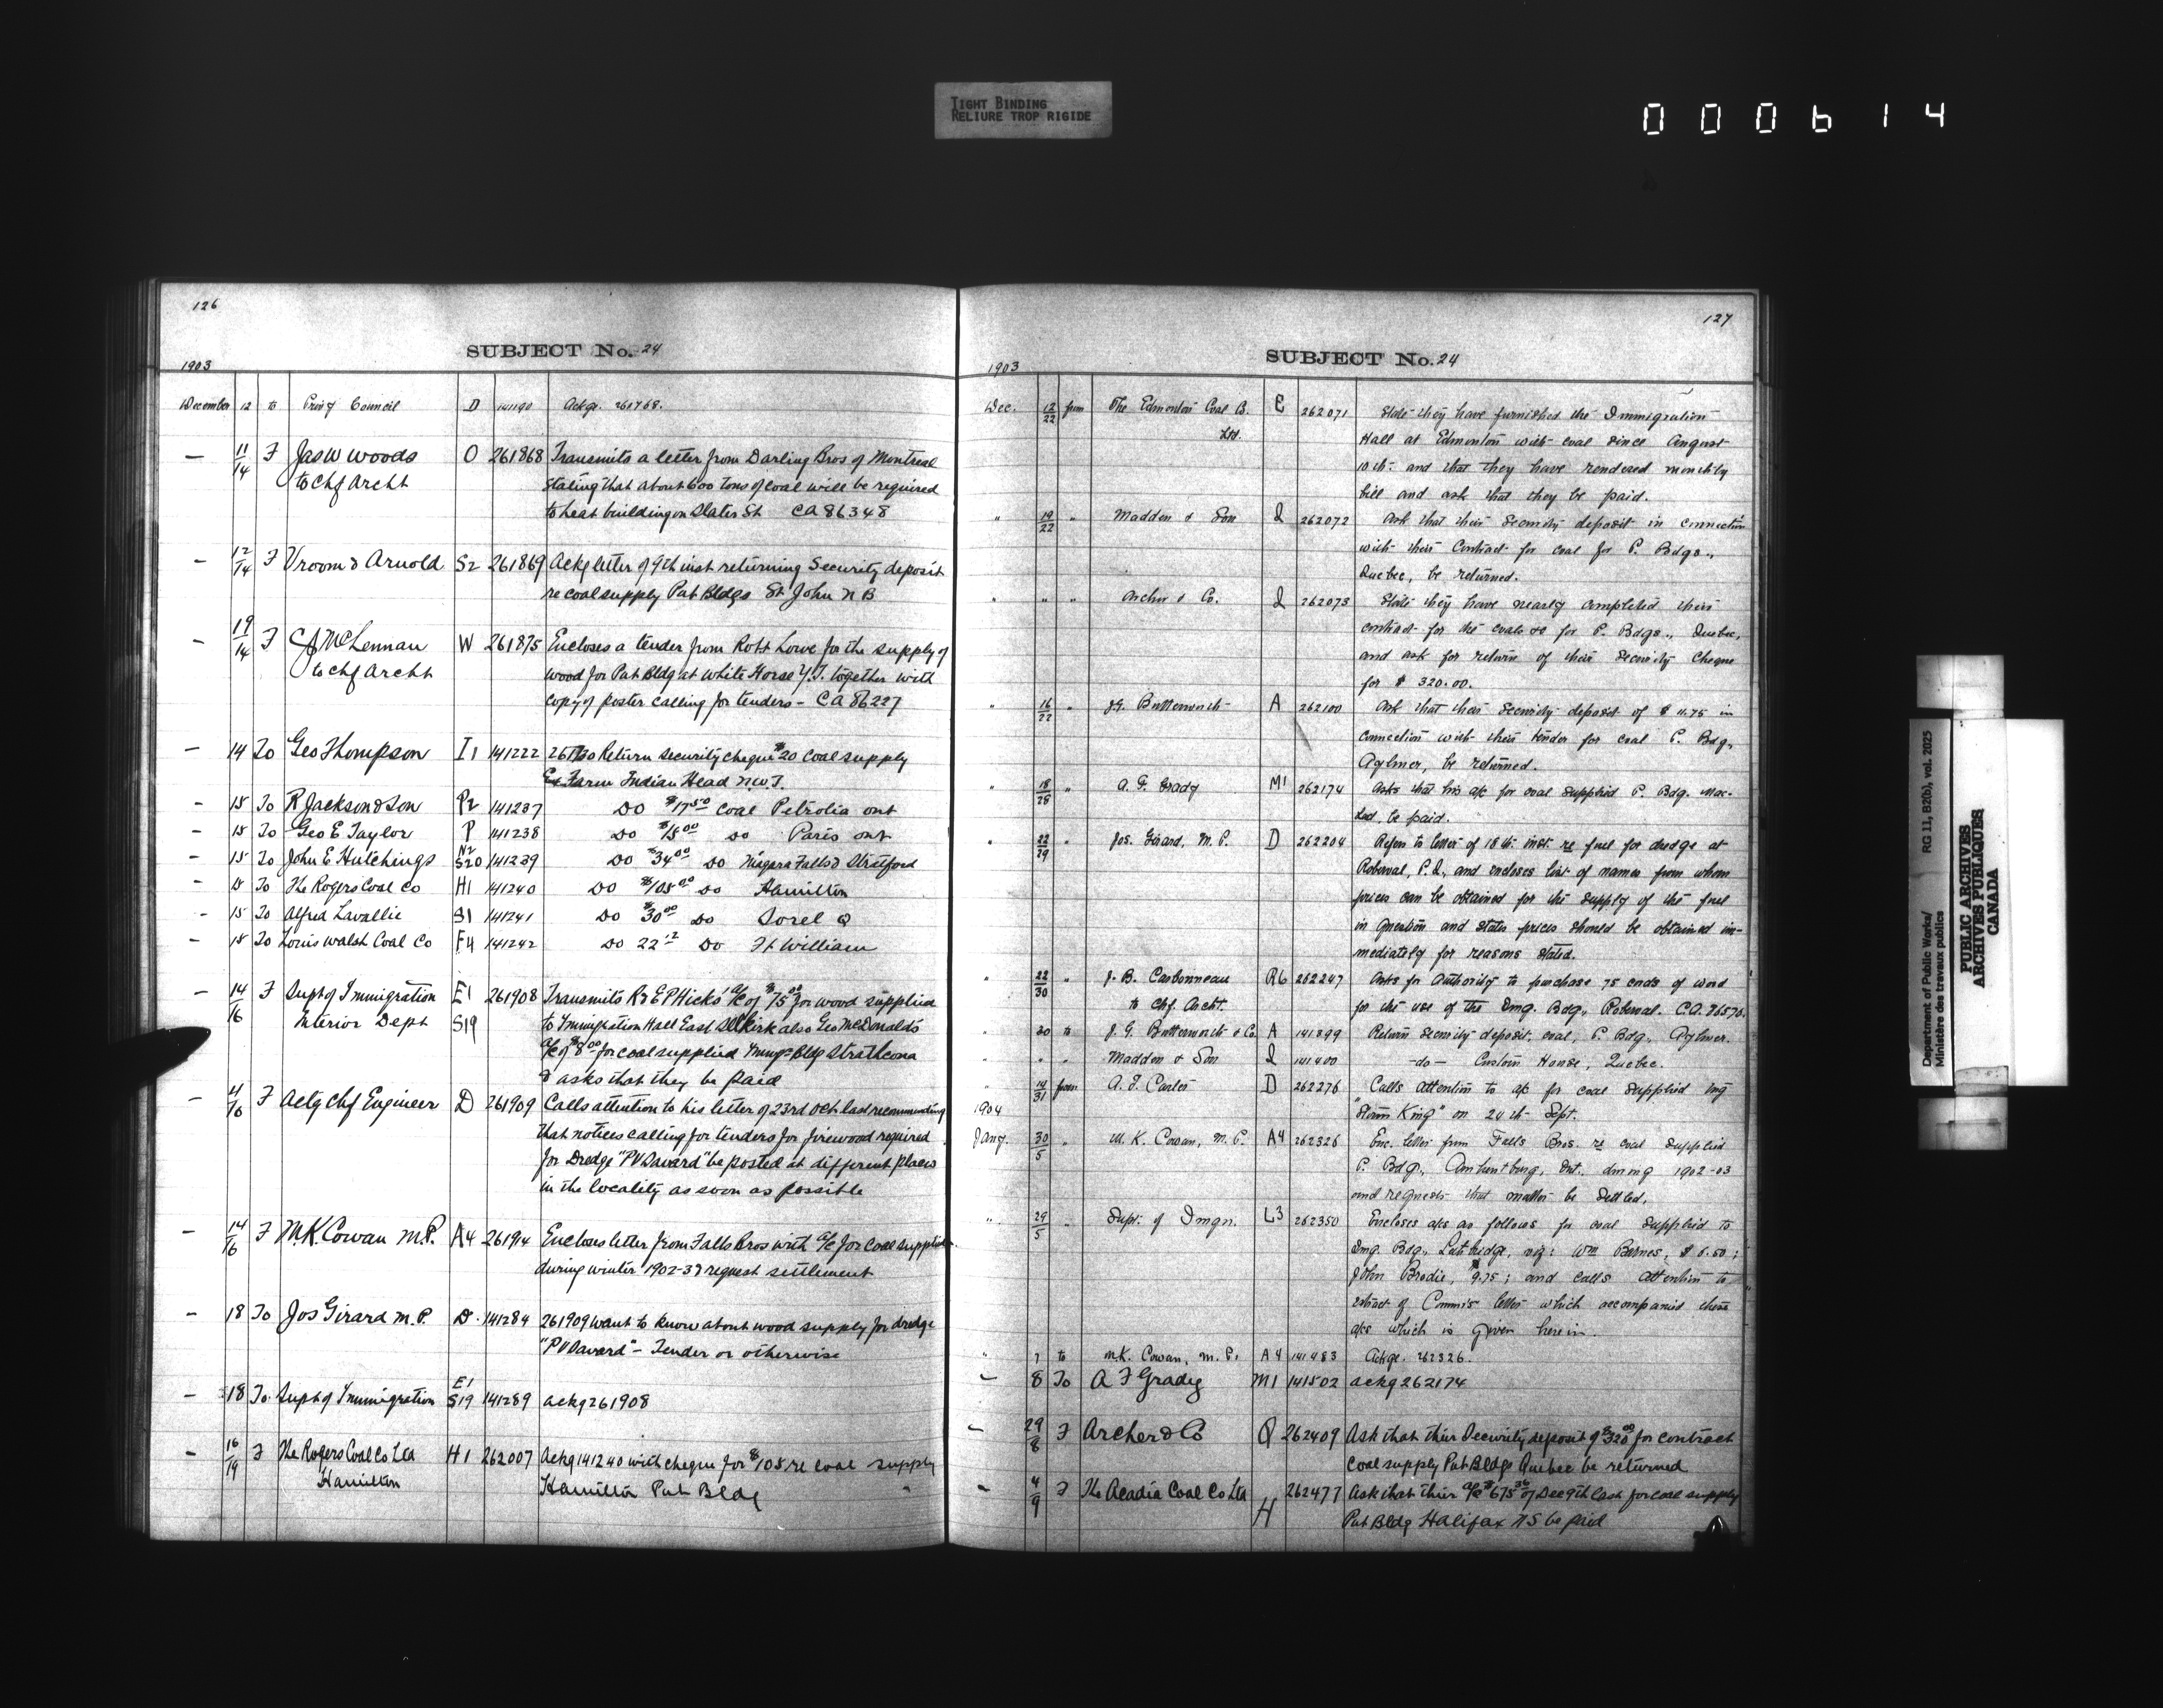 TIGHT BINDING
RELIURE TROP RIGIDE
000614
126
SUBJECT No. 24
1903
December 12 to Privy Council D 141190 Ackge. 261768.
— 11/14 F Jas W Woods O 261868 Transmits a letter from Darling Bros of Montreal
to Chf Archt stating that about 600 tons of coal will be required
to heat building on Slater St CA 86348
— 12/14 F Vroom & Arnold S2 261869 Ackg letter of 9th inst returning Security deposit
re coal supply Pub Bldgs St John N B
— 19/14 F McLennan W 261875 Encloses a tender from Robt Lowe for the supply of
to Chf Archt wood for Pub Bldg at White Horse Y.T. together with
copy of poster calling for tenders - CA 86227
— 14 To Geo Thompson I1 141222 Return security cheque $20 coal supply
Farm Indian Head N.W.T.
- 15 To R Jackson & Son P2 141237 Do $17.50 Coal Petrolia Ont
- 15 To Geo E Taylor P 141238 Do $15.00 Do Paris Ont
- 15 To John E Hutchings N2 S20 141239 Do $34.00 Do Niagara Falls & Stratford
- 15 To The Rogers Coal Co H1 141240 Do $108.00 Do Hamilton
- 15 To Alfred Lavallie S1 141241 Do $30.00 Do Sorel Q
- 15 To Louis Walsh Coal Co F4 141242 Do 22.12 Do Ft William
— 14/16 F Supt of Immigration E1 261908 Transmits R & E P Hicks' a/c of $75.00 for wood supplied
Interior Dept S19 to Immigration Hall East Selkirk also Geo McDonald's
a/c of $8.00 for coal supplied Immigr Bldg Strathcona
& asks that they be paid
- 4/16 F Actg Chf Engineer D 261909 Calls attention to his letter of 23rd Oct last recommending
that notices calling for tenders for firewood required
for Dredge "P V Savard" be posted at different places
in the locality as soon as possible
- 14/16 F M.K. Cowan M.P. A4 261914 Encloses letter from Falls Bros with a/c for coal supplied
during winter 1902-3 & request settlement
- 18 To Jos Girard M.P. D. 141284 261909 want to know about wood supply for dredge
"P V Savard" - Tender or otherwise
- 18 To Supt of Immigration E1 S19 141289 ackg 261908
- 16/19 F The Rogers Coal Co Lta H1 262007 Ackg 141240 with cheque for $108 re coal supply
Hamilton Hamilton Pub Bldg
127
SUBJECT No. 24
1903
Dec. 12/22 from The Edmonton Coal Co. E 262071 State they have furnished the Immigration
Ltd. Hall at Edmonton with coal since August
10th. and that they have rendered monthly
bill and ask that they be paid.
" 19/22 " Madden & Son Q 262072 Ask that their security deposit in connection
with their contract for coal for P. Bdgs.,
Quebec, be returned.
" " " Archer & Co. Q 262073 State they have nearly completed their
contract for the coal for P. Bdgs., Quebec,
and ask for return of their security cheque
for $320.00.
" 16/22 " J.G. Butterworth A 262100 Ask that their security deposit of $11.75 in
connection with their tender for coal P. Bdg,
Aylmer, be returned.
" 18/28 " A. F. Grady M1 262174 Asks that his a/c for coal supplied P. Bdg. Mac-
Lod, be paid.
" 22/29 " Jos. Girard, M.P. D 262204 Refers to letter of 18th. inst. re fuel for dredge at
Roberval, P.Q., and encloses list of names from whom
prices can be obtained for the supply of the fuel
in question and states prices should be obtained im-
mediately for reasons stated.
" 22/30 " J. B. Carbonneau R6 262247 Asks for authority to purchase 75 cords of wood
to Chf. Archt. for the use of the Img. Bdg., Roberval. C.A. 86570.
" 30 to J. G. Butterworth & Co. A 141399 Return security deposit, coal, P. Bdg., Aylmer.
" " " Madden & Son Q 141400 -do- Custom House, Quebec.
" 14/31 from A. J. Carter D 262276 Calls attention to a/c for coal supplied tug
1904 "Storm King" on 24th Sept.
Jany. 30/5 " M. K. Cowan, M.P. A4 262326 Enc. letter from Falls Bros. re coal supplied
P. Bdg., Amherstburg, Ont. during 1902-03
and requests that matter be settled.
" 29/5 " Supt. of Immgn. L3 262350 Encloses a/cs as follows for coal supplied to
Img. Bdg., Lethbridge, viz: Wm Barnes, $6.50;
John Brodie, $9.75; and calls attention to
extract of Commr's letter which accompanied these
a/cs which is given herein.
" 7 to M.K. Cowan, M.P. A4 141483 Ackge. 262326.
- 8 To A F Grady M1 141502 ackg 262174
- 29/8 F Archer & Co Q 262409 Ask that their Security deposit of $320.00 for contract
coal supply Pub Bldgs Quebec be returned
- 4/9 F The Acadia Coal Co Lta H 262477 Ask that their a/c $675.36 of Dec 9th last for coal supply
Pub Bldg Halifax N S be paid
Department of Public Works/ RG 11, B2(b), vol. 2025
Ministère des travaux publics
PUBLIC ARCHIVES
ARCHIVES PUBLIQUES
CANADA